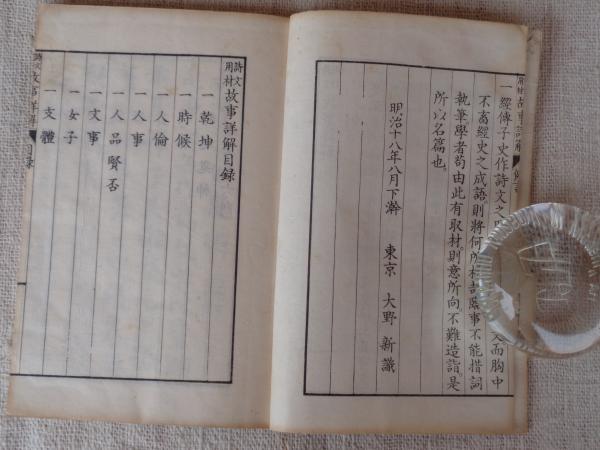 用材 故事詳解
一經傳子史作詩文之而胸中
不畜經史之成語則將何所材故臨事不能措詞
執筆學者苟由此有取材則意所向不難造詣是
所以名篇也
明治十八年八月下澣 東京 大野新識
詩文用材 故事詳解目録
一乾坤
一時候
一人倫
一人事
一人品賢否
一文事
一女子
一支體
目録